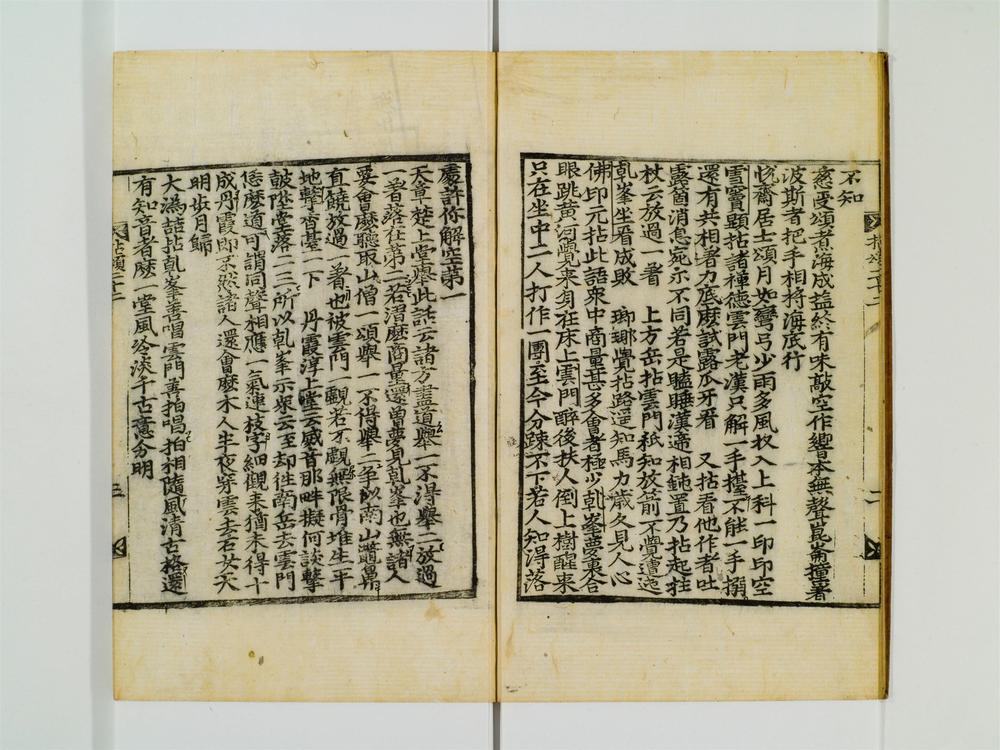 不知
慈受頌煮海成塩終有味敲空作響本無聲崑崙撞著
波斯者把手相將海底行
悅齋居士頌月如彎弓少雨多風収入上科一印印空
雪竇顯拈諸禪德雲門老漢只解一手擡不能一手搦
還有共相著力底麽試露爪牙看 又拈看他作者吐
露箇消息宛尒不同若是瞌睡漢適相鈍置乃拈起拄
杖云放過一著 上方岳拈雲門秪知放前不覺遭迍
乹峯坐看成敗 瑯瑘覺拈路遥知馬力歲久見人心
佛印元拈此語衆中商量甚多會者極少乹峯夢裏合
眼跳黃河覺來身在床上雲門醉後扶人倒上樹醒來
只在坐中二人打作一團至今分踈不下若人知得落
處許你解空第一
天章楚上堂舉此話云諸方盡道舉一不得舉二放過
一著落在第二若淂麽商量還曾夢見乹峯也無諸人
要會麽聽取山僧一頌舉一不得舉二孚似南山鼈鼻
直饒放過一著也被雲門一覰若不覰無限骨堆生平
地擊香臺一下 丹霞淳上堂云威音那畔擬何談擊
皷陞堂落二三所以乹峯示衆云至却往南岳去雲門
恁麽道可謂同聲相應一氣連枝子細觀来猶未得十
成丹霞即不然諸人還會麽木人半夜穿雲去石女天
明步月歸
大潙喆拈乹峯善唱雲門善拍唱拍相隨風清古格還
有知音者麽一堂風冷淡千古意分明
拈頌二十二
三
二